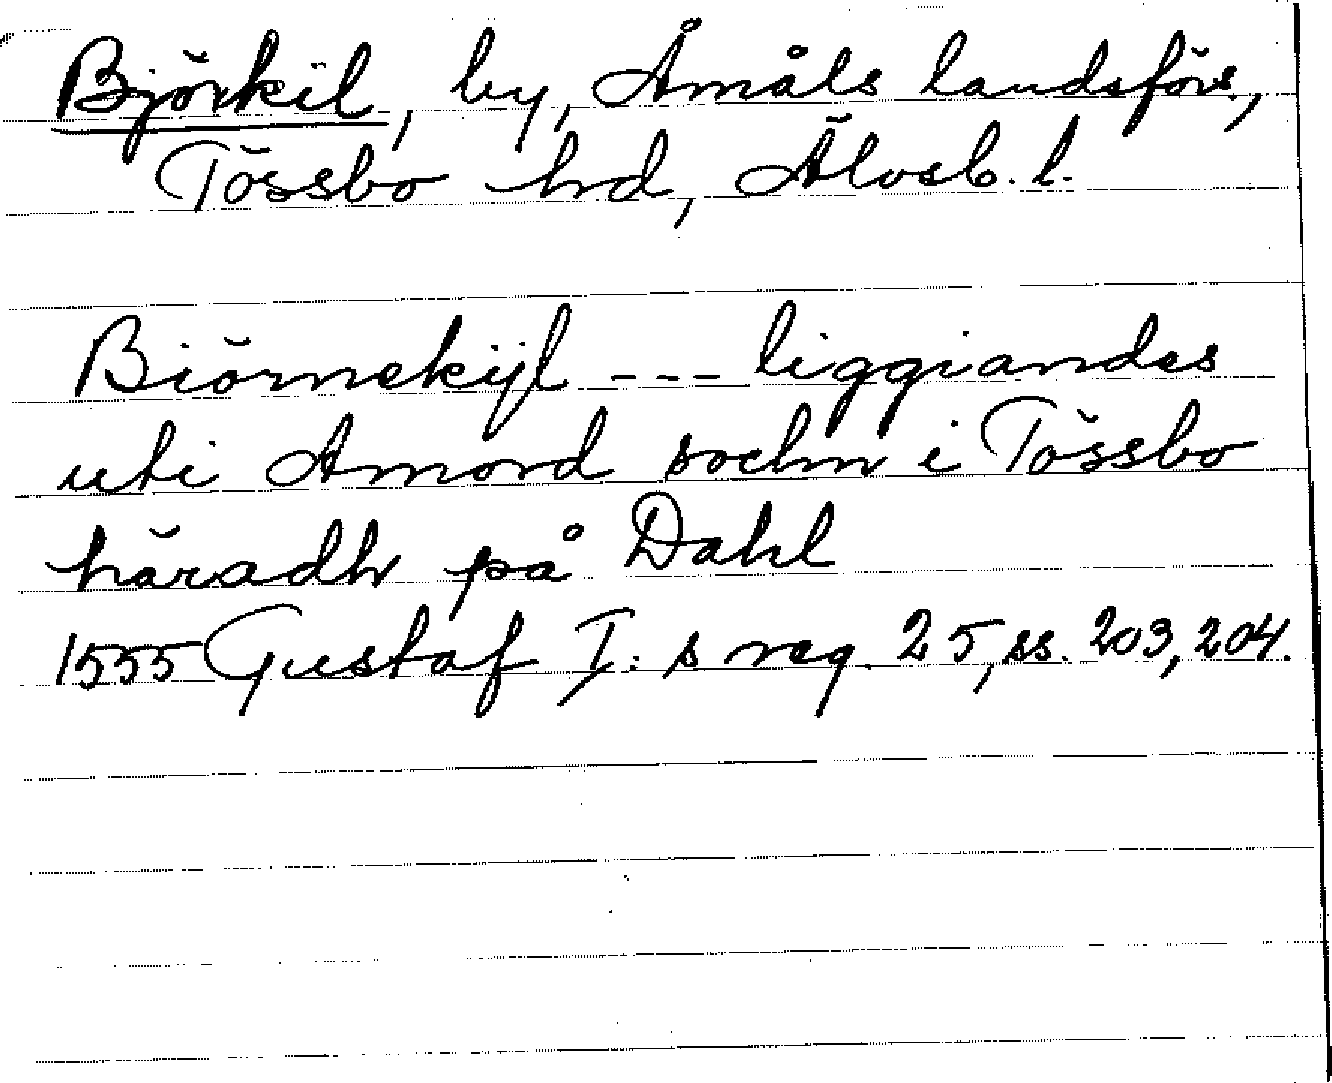 Björkil, by, Åmåls landsförs.,
Tössbo hd, Älvsb. l.
Biörnekijl --- liggiandes
uti Amord sochn i Tössbo
häradh på Dahl
1555 Gustaf I:s reg. 25, ss. 203, 204.